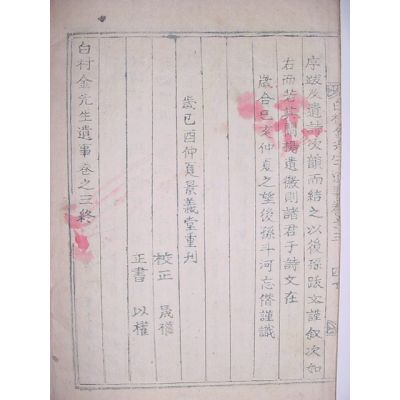 序跋及遺詩次韻而結之以後孫跋文謹叙次如
右而若其闡揚遺徽則諸君子詩文在
歲舍己亥仲夏之望後孫斗河忘僭謹識
歲己酉仲夏景義堂重刊
校正 晟權
正書 以權
白村金先生遺事卷之三終